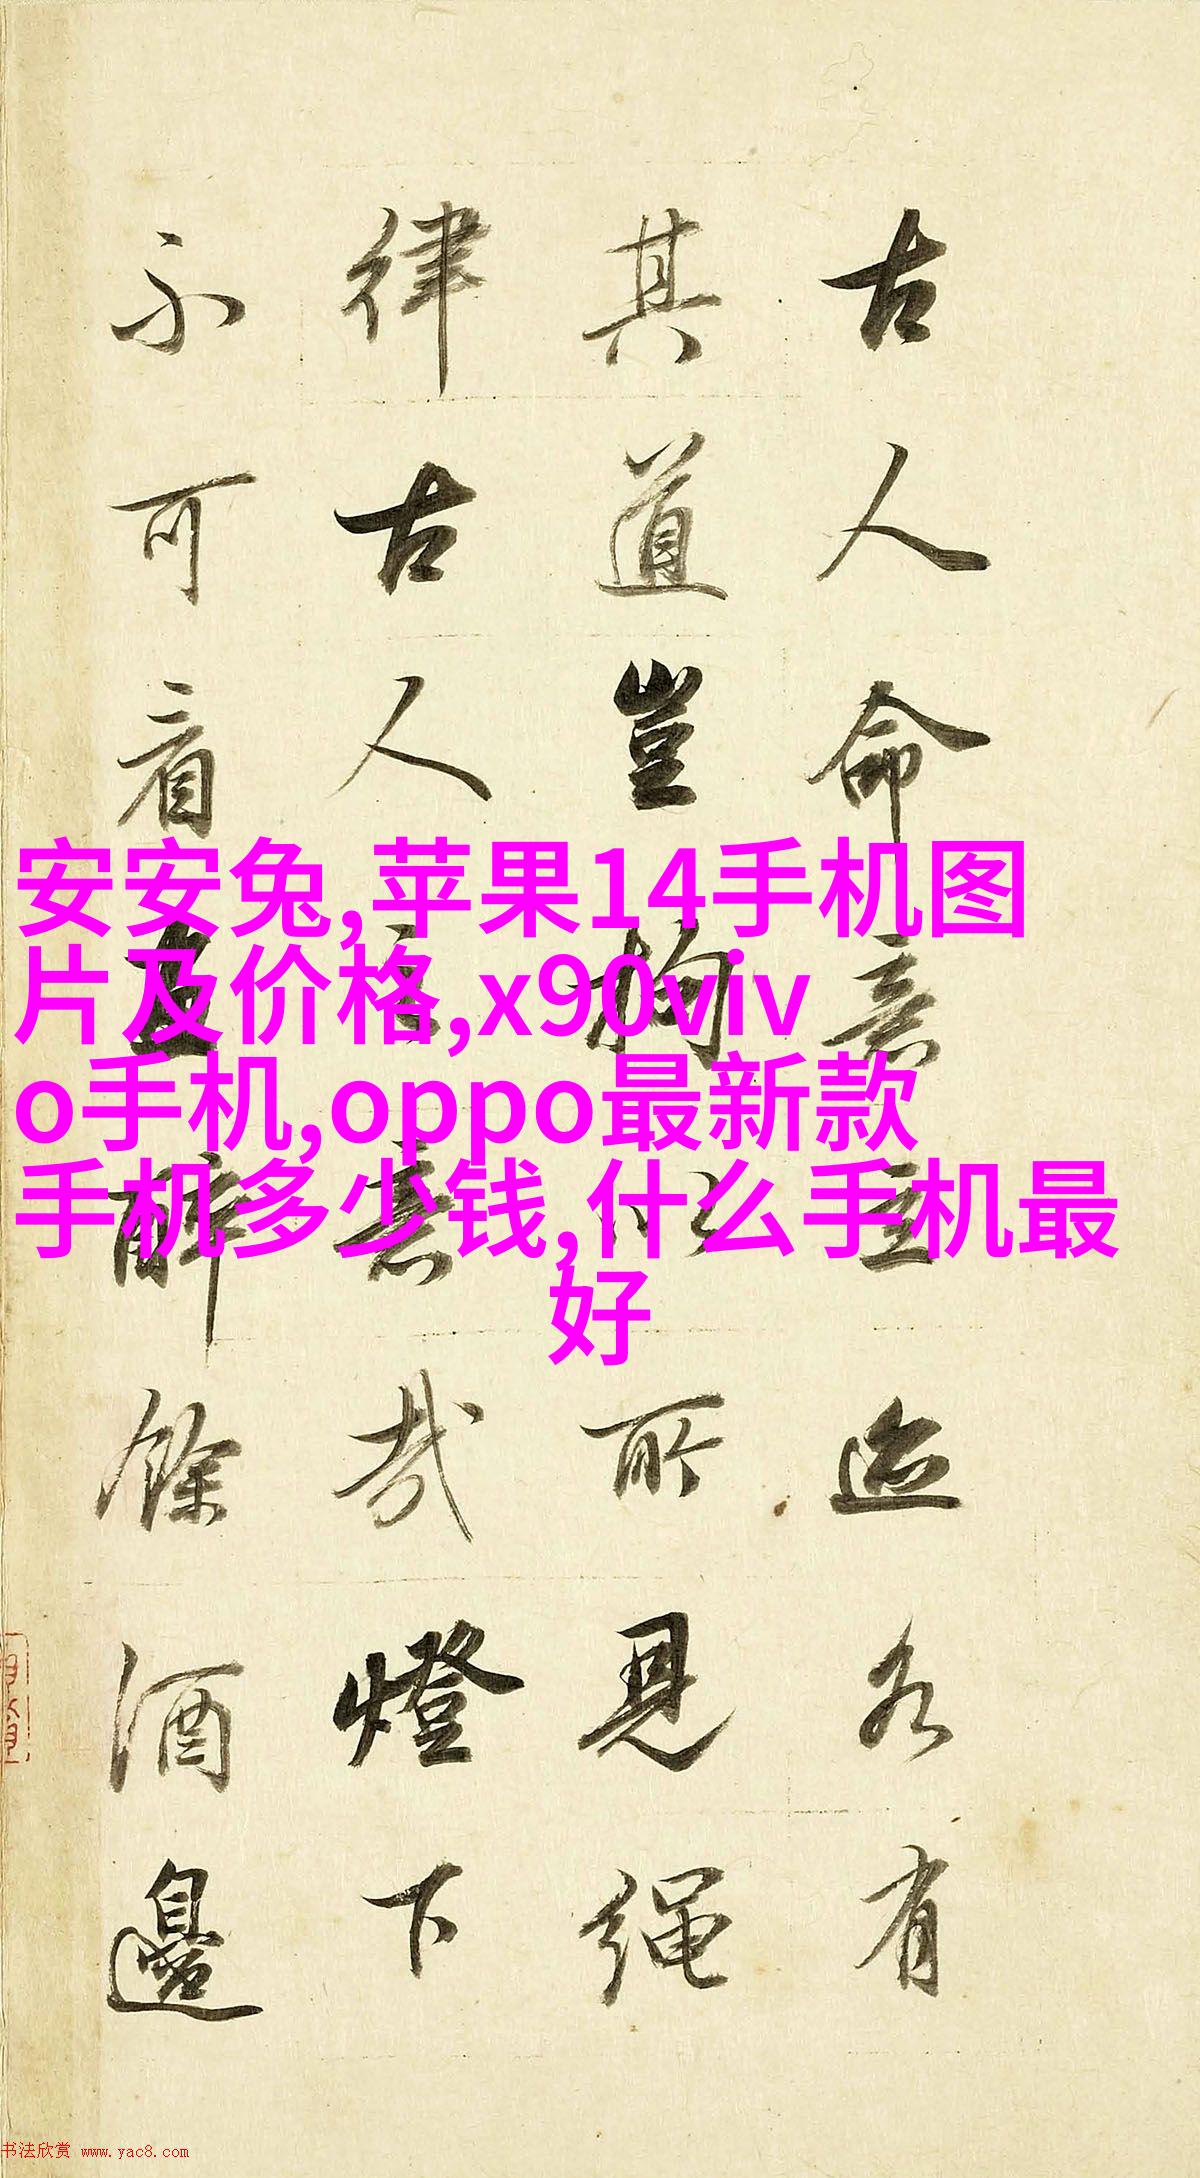 古人命意立迹各有
其道豈拘所見繩
律古人意哉燈下
不可看醉餘酒邊
安安兔,苹果14手机图
片及价格,x90viv
o手机,oppo最新款
手机多少钱,什么手机最
好
书法欣赏 www.yac8.com